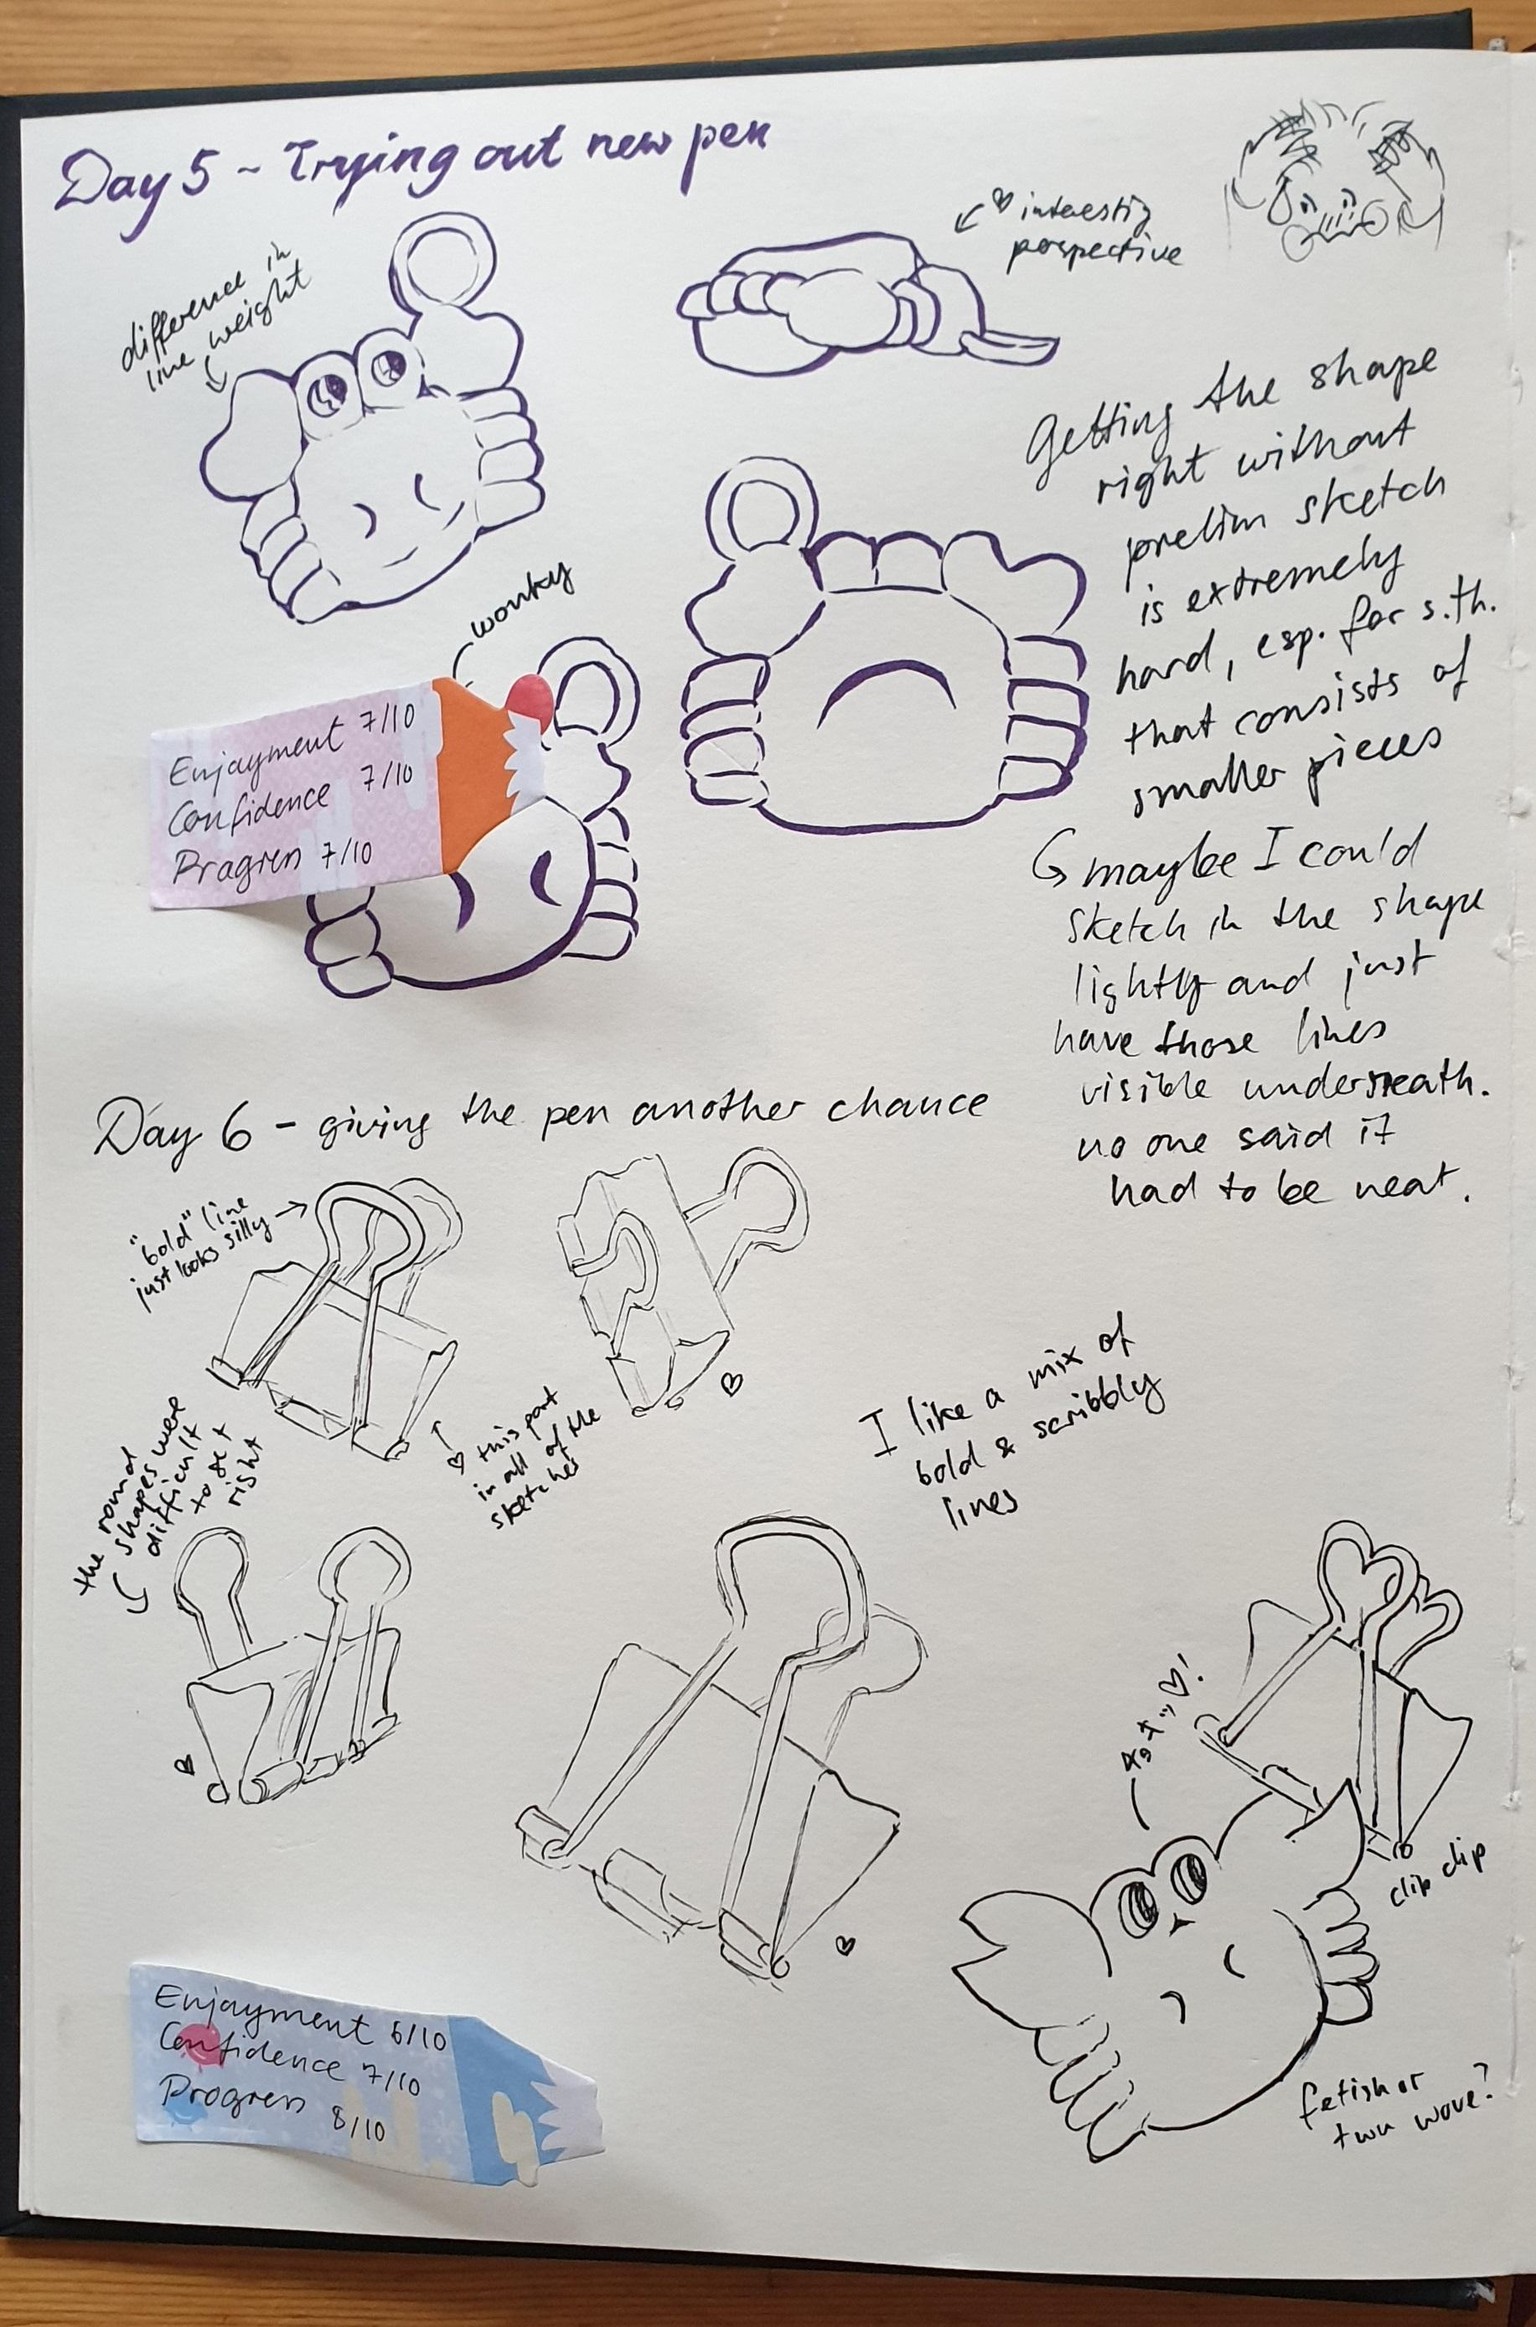 Day 5 - Trying out new pen
difference in
line weight
♡ interestig
perspective
Getting the shape
right without
prelim sketch
is extremely
hard, esp. for s.th.
that consists of
smaller pieces
maybe I could
sketch in the shape
lightly and just
have those lines
visible underneath.
no one said it
had to be neat.
wonky
Enjoyment 7/10
Confidence 7/10
Progress 7/10
Day 6 - giving the pen another chance
"bold" line
just looks silly
the round
shapes were
difficult
to get
right
♡ this part
in all of the
sketches
I like a mix of
bold & scribbly
lines
clip clip
fetish or
twu wove?
Enjoyment 6/10
Confidence 7/10
Progress 8/10